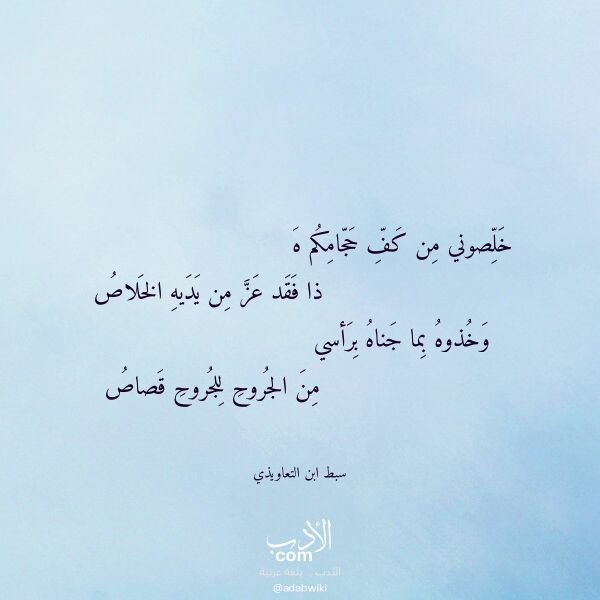 خَلِّصوني مِن كَفِّ حَجّامِكُم هَ
ذا فَقَد عَزَّ مِن يَدَيهِ الخَلاصُ
وَخُذوهُ بِما جَناهُ بِرَأسي
مِنَ الجُروحِ لِلجُروحِ قَصاصُ
سبط ابن التعاويذي
الأدب
com
الأدب .. بلغة عربية
@adabwiki